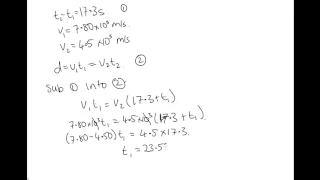 t₂-t₁=17.3s ①
V₁=7.80x10³ m/s.
V₂=4.5x10³ m/s
d=V₁t₁=V₂t₂ ②
Sub ① into ②
V₁t₁=V₂(17.3+t₁)
7.80x10³t₁=4.5x10³(17.3+t₁)
(7.80-4.50)t₁=4.5x17.3.
t₁=23.5